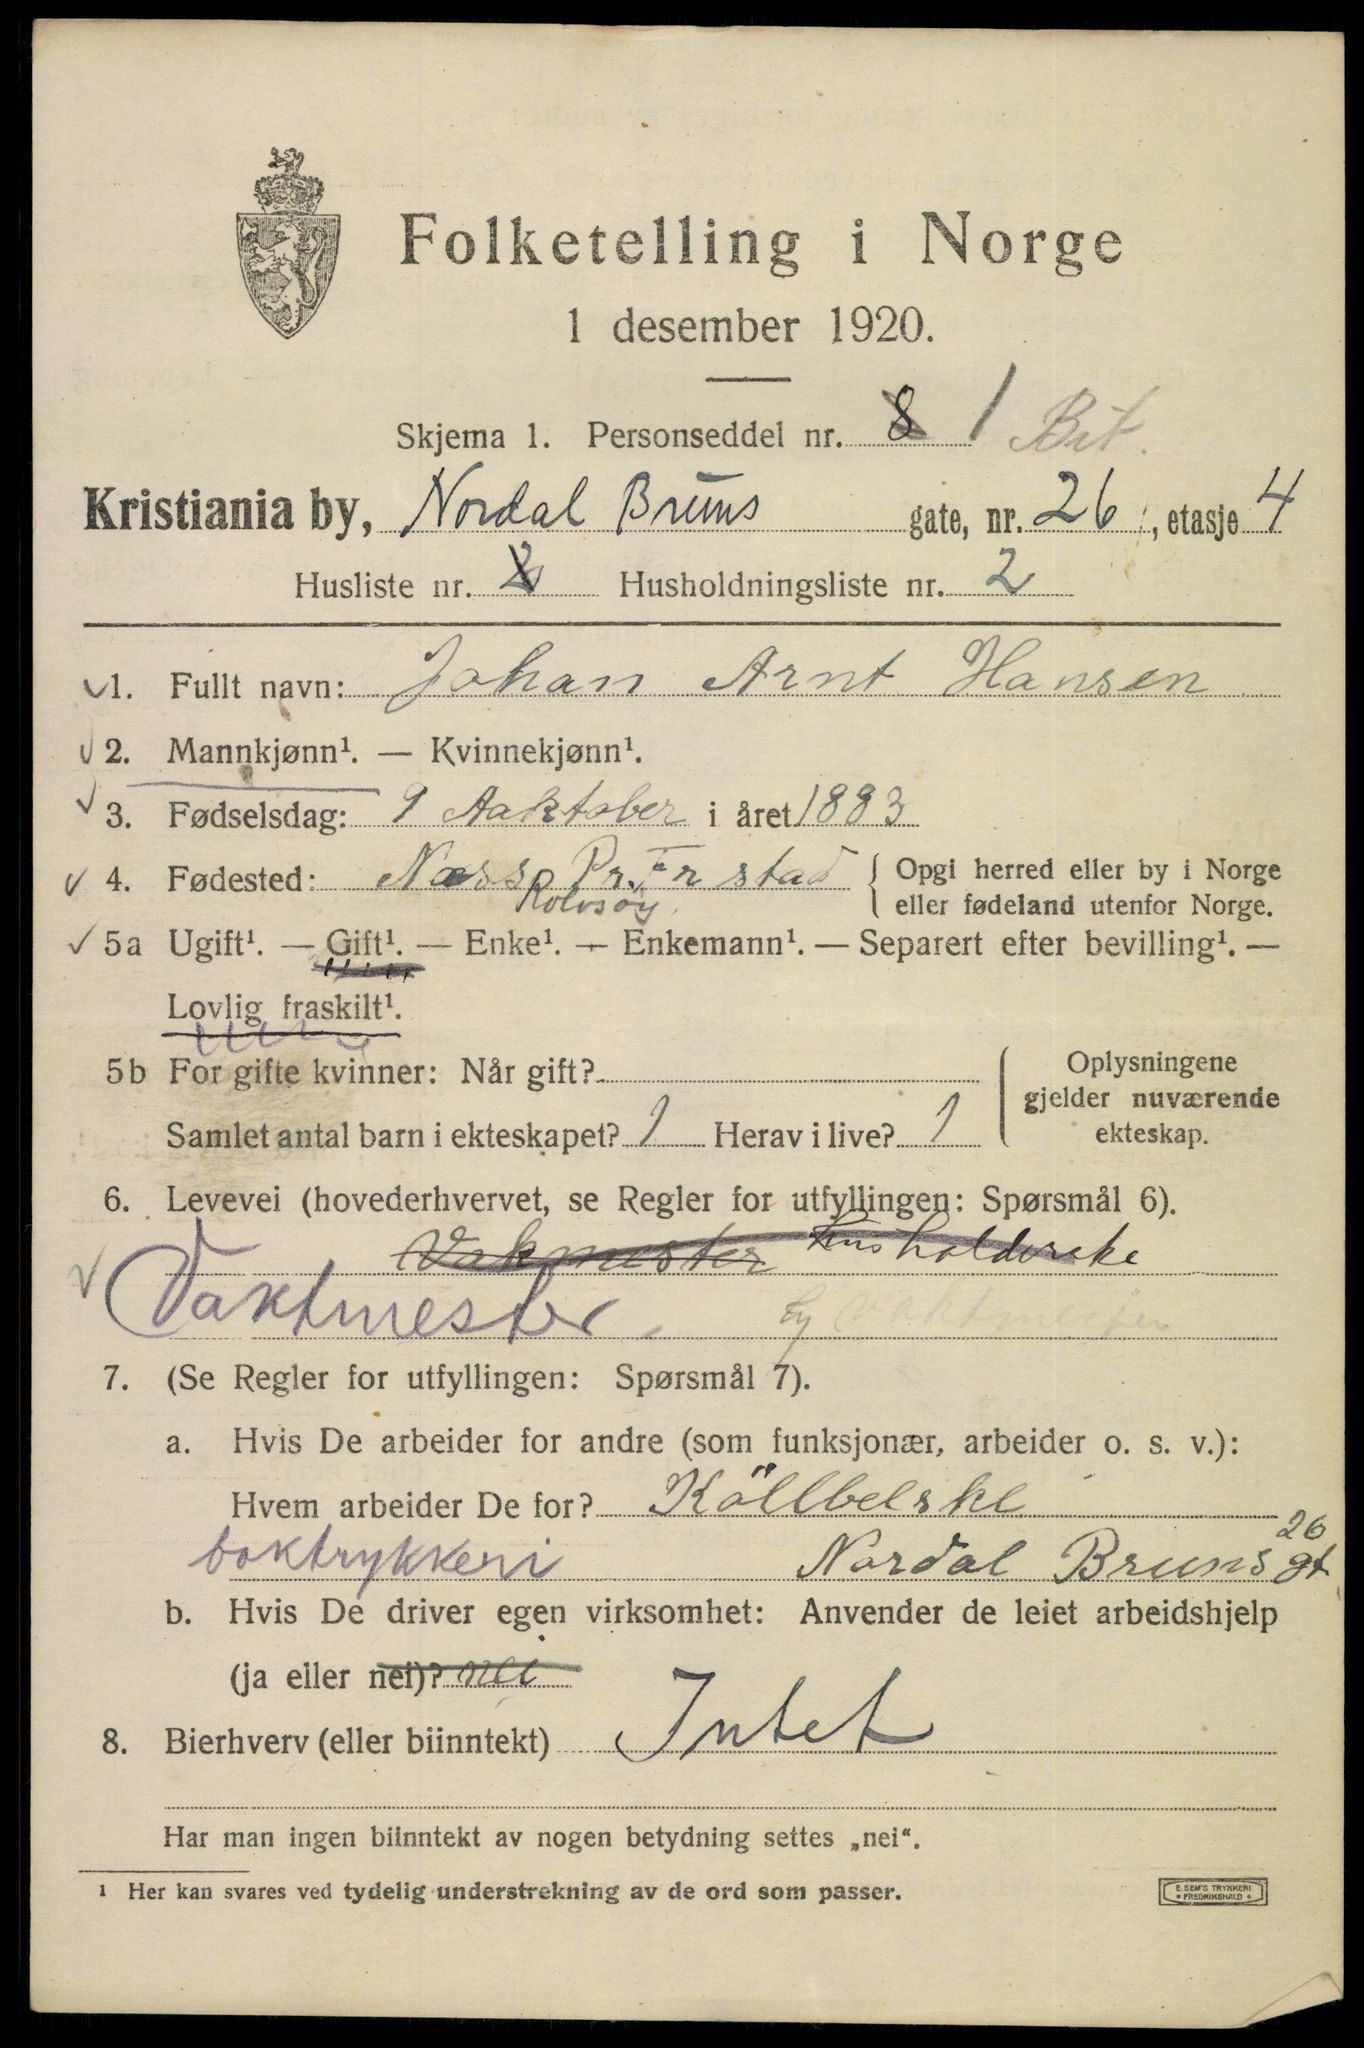 Folketelling i Norge
1 desember 1920.
Skjema 1. Personseddel nr. 8 1 Bit.
Kristiania by, Nordal Bruns gate, nr. 26, etasje 4
Husliste nr. Husholdningsliste nr. 2
1. Fullt navn: Johan Arnt Hansen
2. Mannkjønn¹. — Kvinnekjønn¹.
3. Fødselsdag: 9 Aaktober i året 1883
4. Fødested: Næss Pr. Fr stad { Opgi herred eller by i Norge
Rolvsøy eller fødeland utenfor Norge.
5a Ugift¹. — Gift¹. — Enke¹. — Enkemann¹. — Separert efter bevilling¹. —
Lovlig fraskilt¹.
5b For gifte kvinner: Når gift? Oplysningene
gjelder nuværende
Samlet antal barn i ekteskapet? 1 Herav i live? 1 ekteskap.
6. Levevei (hovederhvervet, se Regler for utfyllingen: Spørsmål 6).
Vakmester
Vaktmester
7. (Se Regler for utfyllingen: Spørsmål 7).
a. Hvis De arbeider for andre (som funksjonær, arbeider o. s. v.):
Hvem arbeider De for?
boktrykkeri Nordal Bruns gt 26
b. Hvis De driver egen virksomhet: Anvender de leiet arbeidshjelp
(ja eller nei)? nei
8. Bierhverv (eller biinntekt) Intet
Har man ingen biinntekt av nogen betydning settes „nei“.
¹ Her kan svares ved tydelig understrekning av de ord som passer.
E. SEM'S TRYKKERI
FREDRIKSHALD